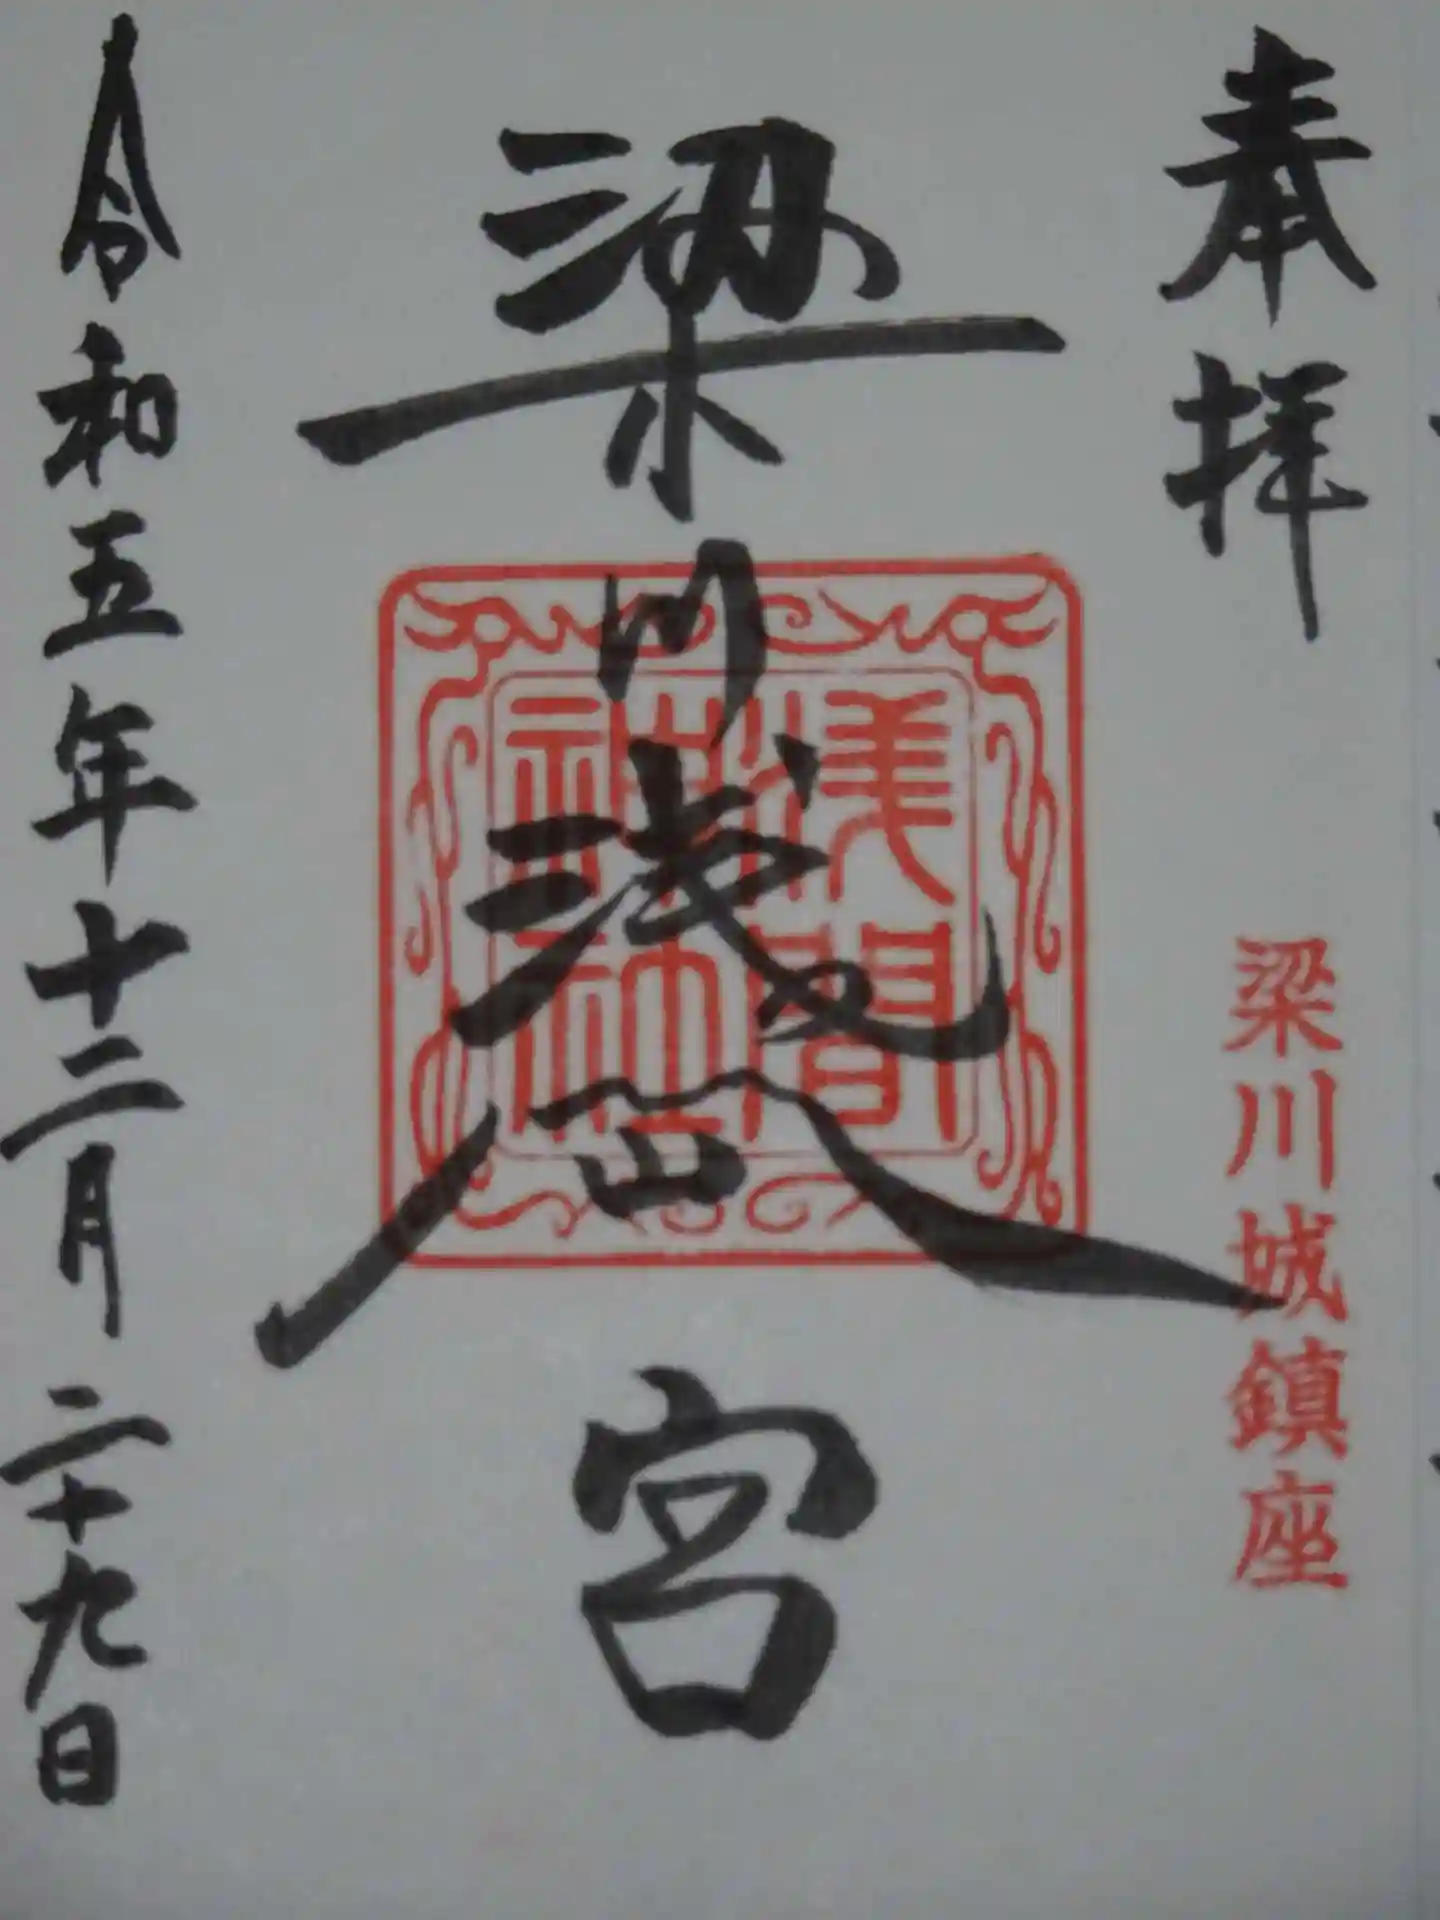 奉拝
梁川城鎮座
梁川浅宮
淺間
神社
令和五年十二月二十九日